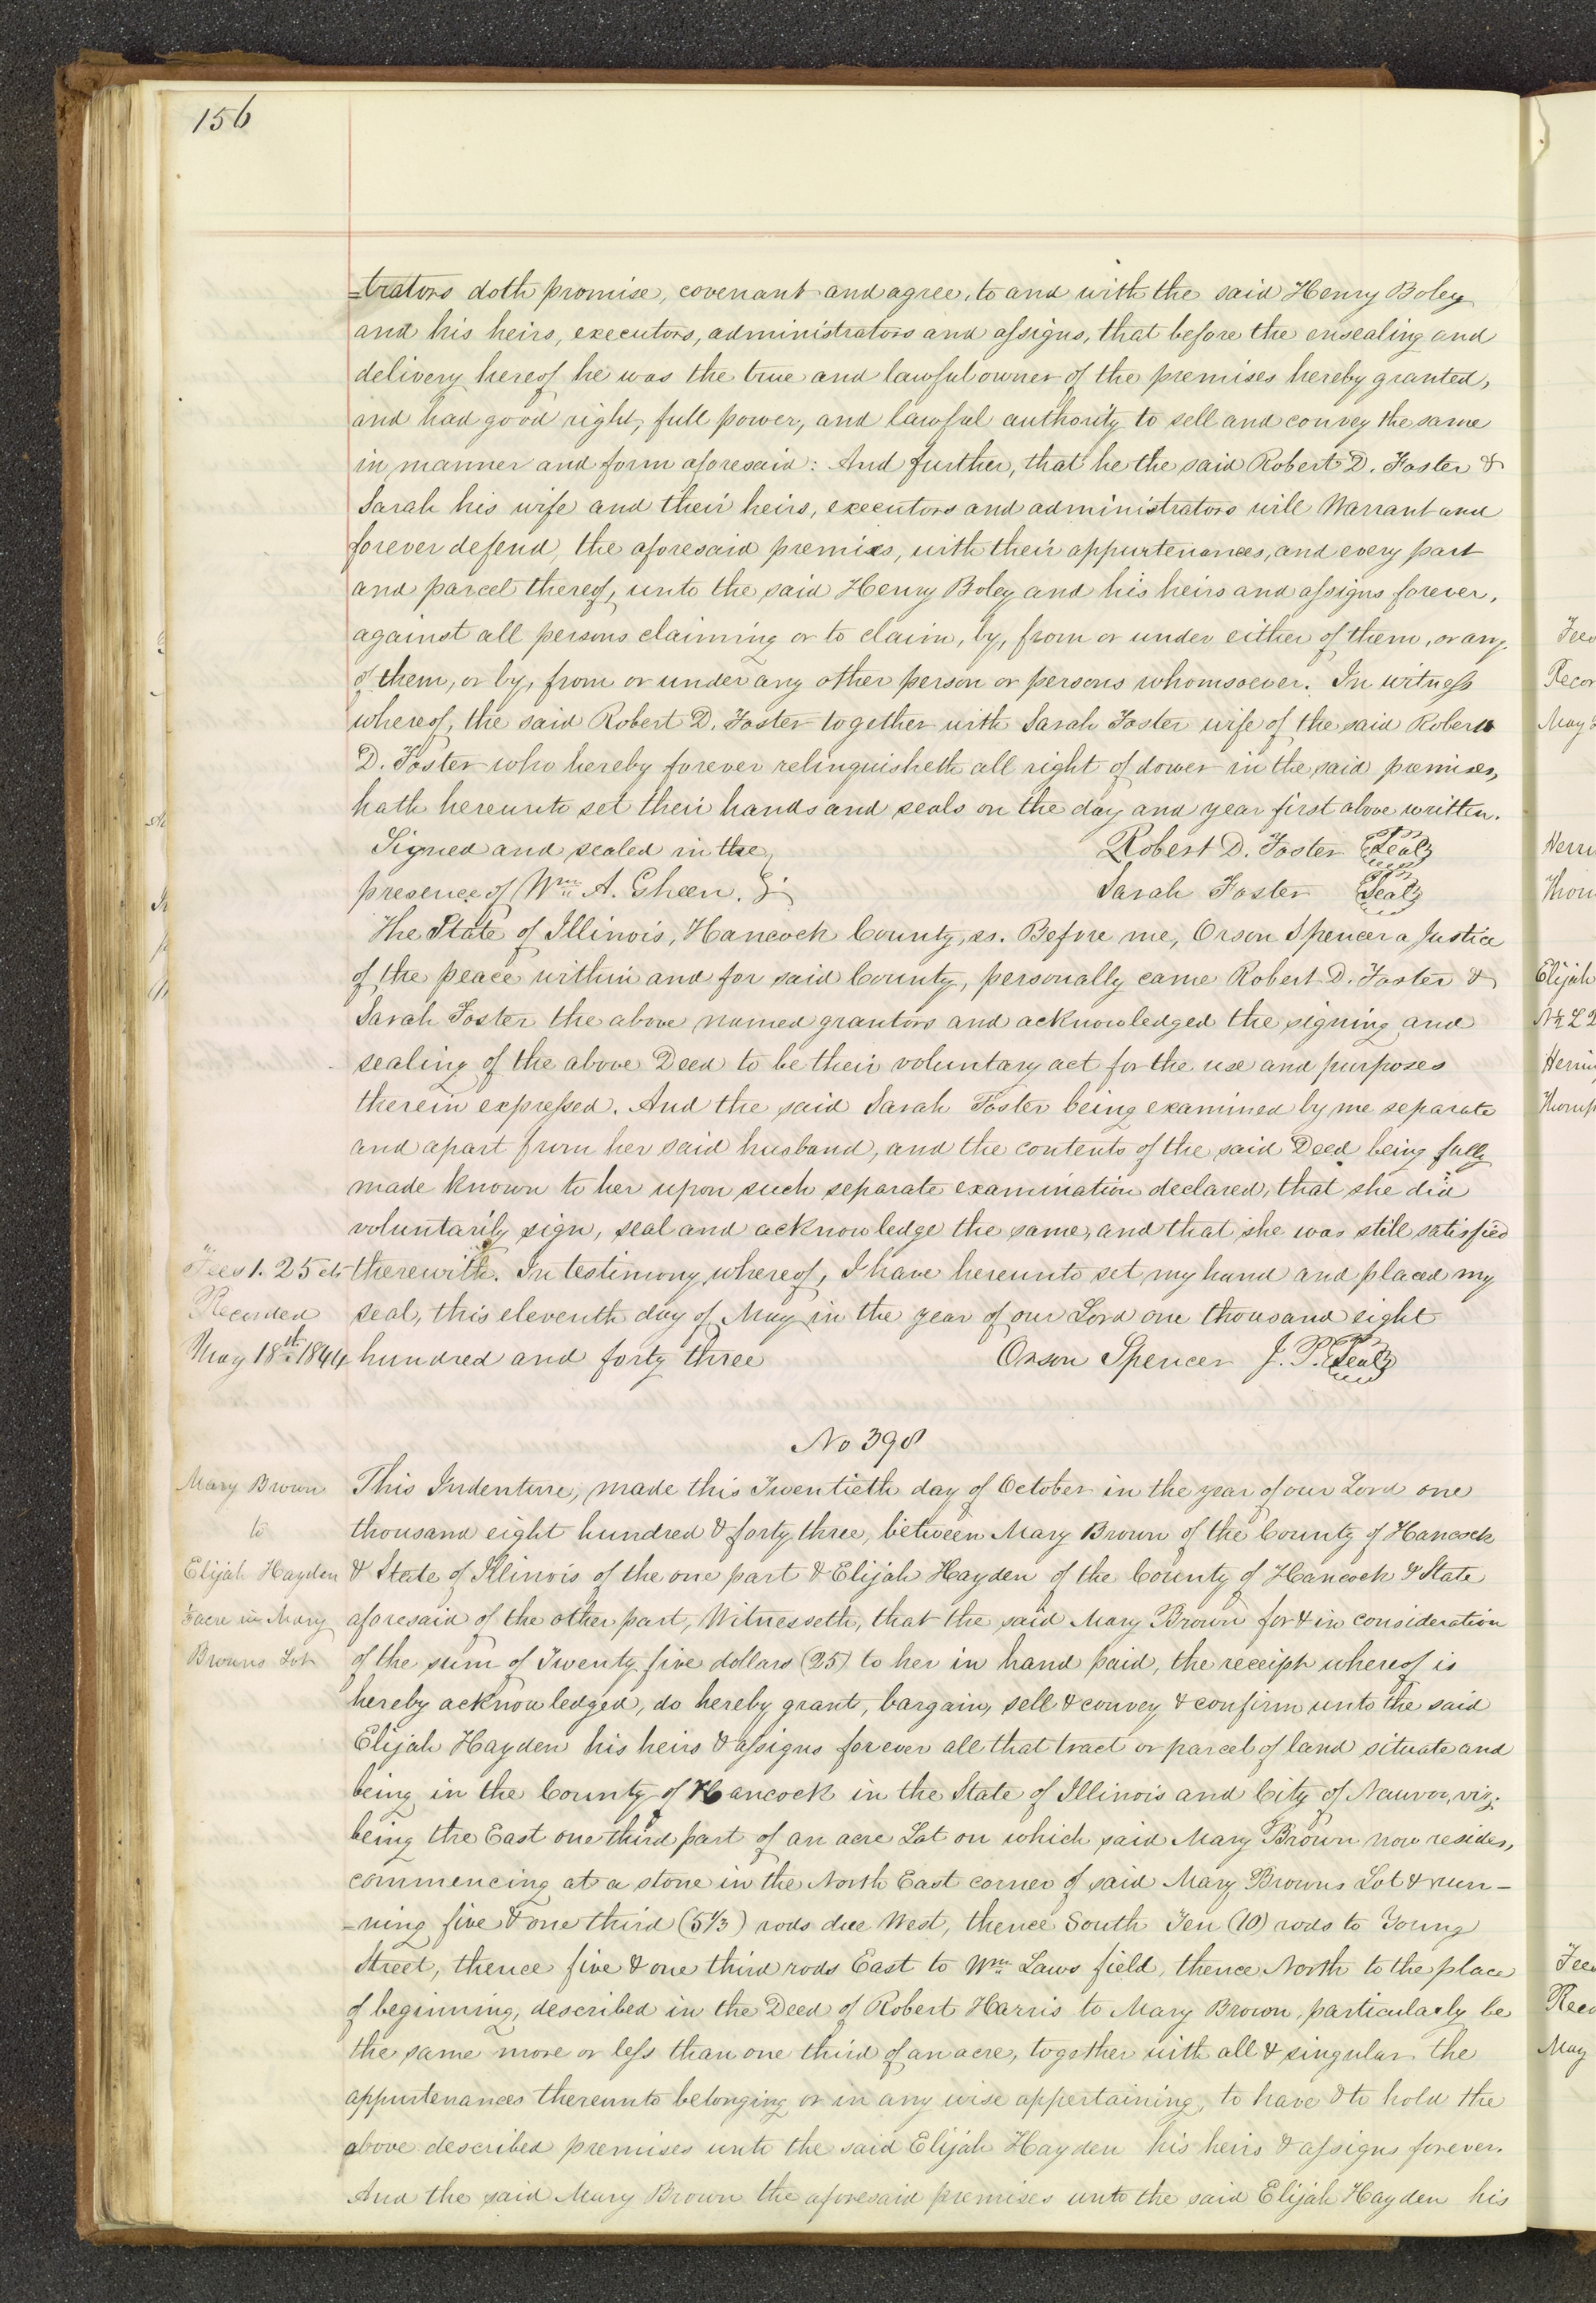 156
=trators doth promise, covenant and agree, to and with the said Henry Boley
and his heirs, executors, administrators and assigns, that before the ensealing and
delivery hereof he was the true and lawful owner of the premises hereby granted,
and had good right, full power, and lawful authority to sell and convey the same
in manner and form aforesaid: And further, that he the said Robert D. Foster &
Sarah his wife and their heirs, executors and administrators will Warrant and
forever defend the aforesaid premises, with their appurtenances, and every part
and parcel thereof, unto the said Henry Boley and his heirs and assigns forever,
against all persons claiming or to claim, by, from or under either of them, or any
of them, or by, from or under any other person or persons whomsoever. In witness
whereof, the said Robert D. Foster together with Sarah Foster wife of the said Robert
D. Foster who hereby forever relinquisheth all right of dower in the said premises,
hath hereunto set their hands and seals on the day and year first above written.
Signed and sealed in the Robert D. Foster Seal
presence of Wm A. Gheen. Sarah Foster Seal
The State of Illinois, Hancock County, ss. Before me, Orson Spencer a Justice
of the peace within and for said County, personally came Robert D. Foster &
Sarah Foster the above named grantors and acknowledged the signing and
sealing of the above Deed to be their voluntary act for the use and purposes
therein expressed. And the said Sarah Foster being examined by me separate
and apart from her said husband, and the contents of the said Deed being fully
made known to her upon such separate examination declared, that she did
voluntarily sign, seal and acknowledge the same, and that she was still satisfied
Fees 1.25 cts therewith. In testimony whereof, I have hereunto set my hand and placed my
Recorded seal, this eleventh day of May in the year of our Lord one thousand eight
May 18th 1844 hundred and forty three Orson Spencer J. P. Seal
No 398
Mary Brown This Indenture, made this Twentieth day of October in the year of our Lord one
to thousand eight hundred & forty three, between Mary Brown of the County of Hancock
Elijah Hayden & State of Illinois of the one part & Elijah Hayden of the County of Hancock & State
acre in Mary aforesaid of the other part, Witnesseth, that the said Mary Brown for & in consideration
Browns Lot of the sum of Twenty five dollars (25) to her in hand paid, the receipt whereof is
hereby acknowledged, do hereby grant, bargain, sell & convey & confirm unto the said
Elijah Hayden his heirs & assigns forever all that tract or parcel of land situate and
being in the County of Hancock in the State of Illinois and City of Nauvoo, viz:
being the East one third part of an acre Lot on which said Mary Brown now resides,
commencing at a stone in the North East corner of said Mary Browns Lot & run-
-ning five & one third (5 1/3) rods due West, thence South Ten (10) rods to Young
Street, thence five & one third rods East to Wm Laws field, thence North to the place
of beginning, described in the Deed of Robert Harris to Mary Brown, particularly be
the same more or less than one third of an acre, together with all & singular the
appurtenances thereunto belonging or in any wise appertaining, to have & to hold the
above described premises unto the said Elijah Hayden his heirs & assigns forever.
And the said Mary Brown the aforesaid premises unto the said Elijah Hayden his